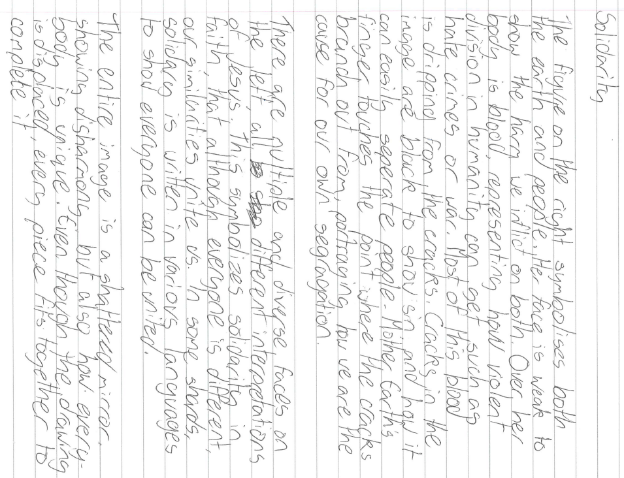 Solidarity
The figure on the right symbolises both
the earth and people. Her face is weak to
show the harm we inflict on both. Over her
body is blood, representing how violent
division in humanity can get such as
hate crimes or war. Most of this blood
is drippind from the cracks. Cracks in the
image are black to show sin and how it
can easily seperate people. Mother Earth's
finger touches the point where the cracks
branch out from, portraying how we are the
cause for our own segragation.
There are multiple and diverse faces on
the left all different interpretations
of Jesus. This symbolizes solidarity in
faith, that although everyone is different,
our similarities unite us. In some shards,
solidarity is writen in various languages
to show everyone can be united.
The entire image is a shattered mirror
showing disharmony but also how every-
body is unique. Even though the drawing
is displaced, every piece fits together to
complete it.